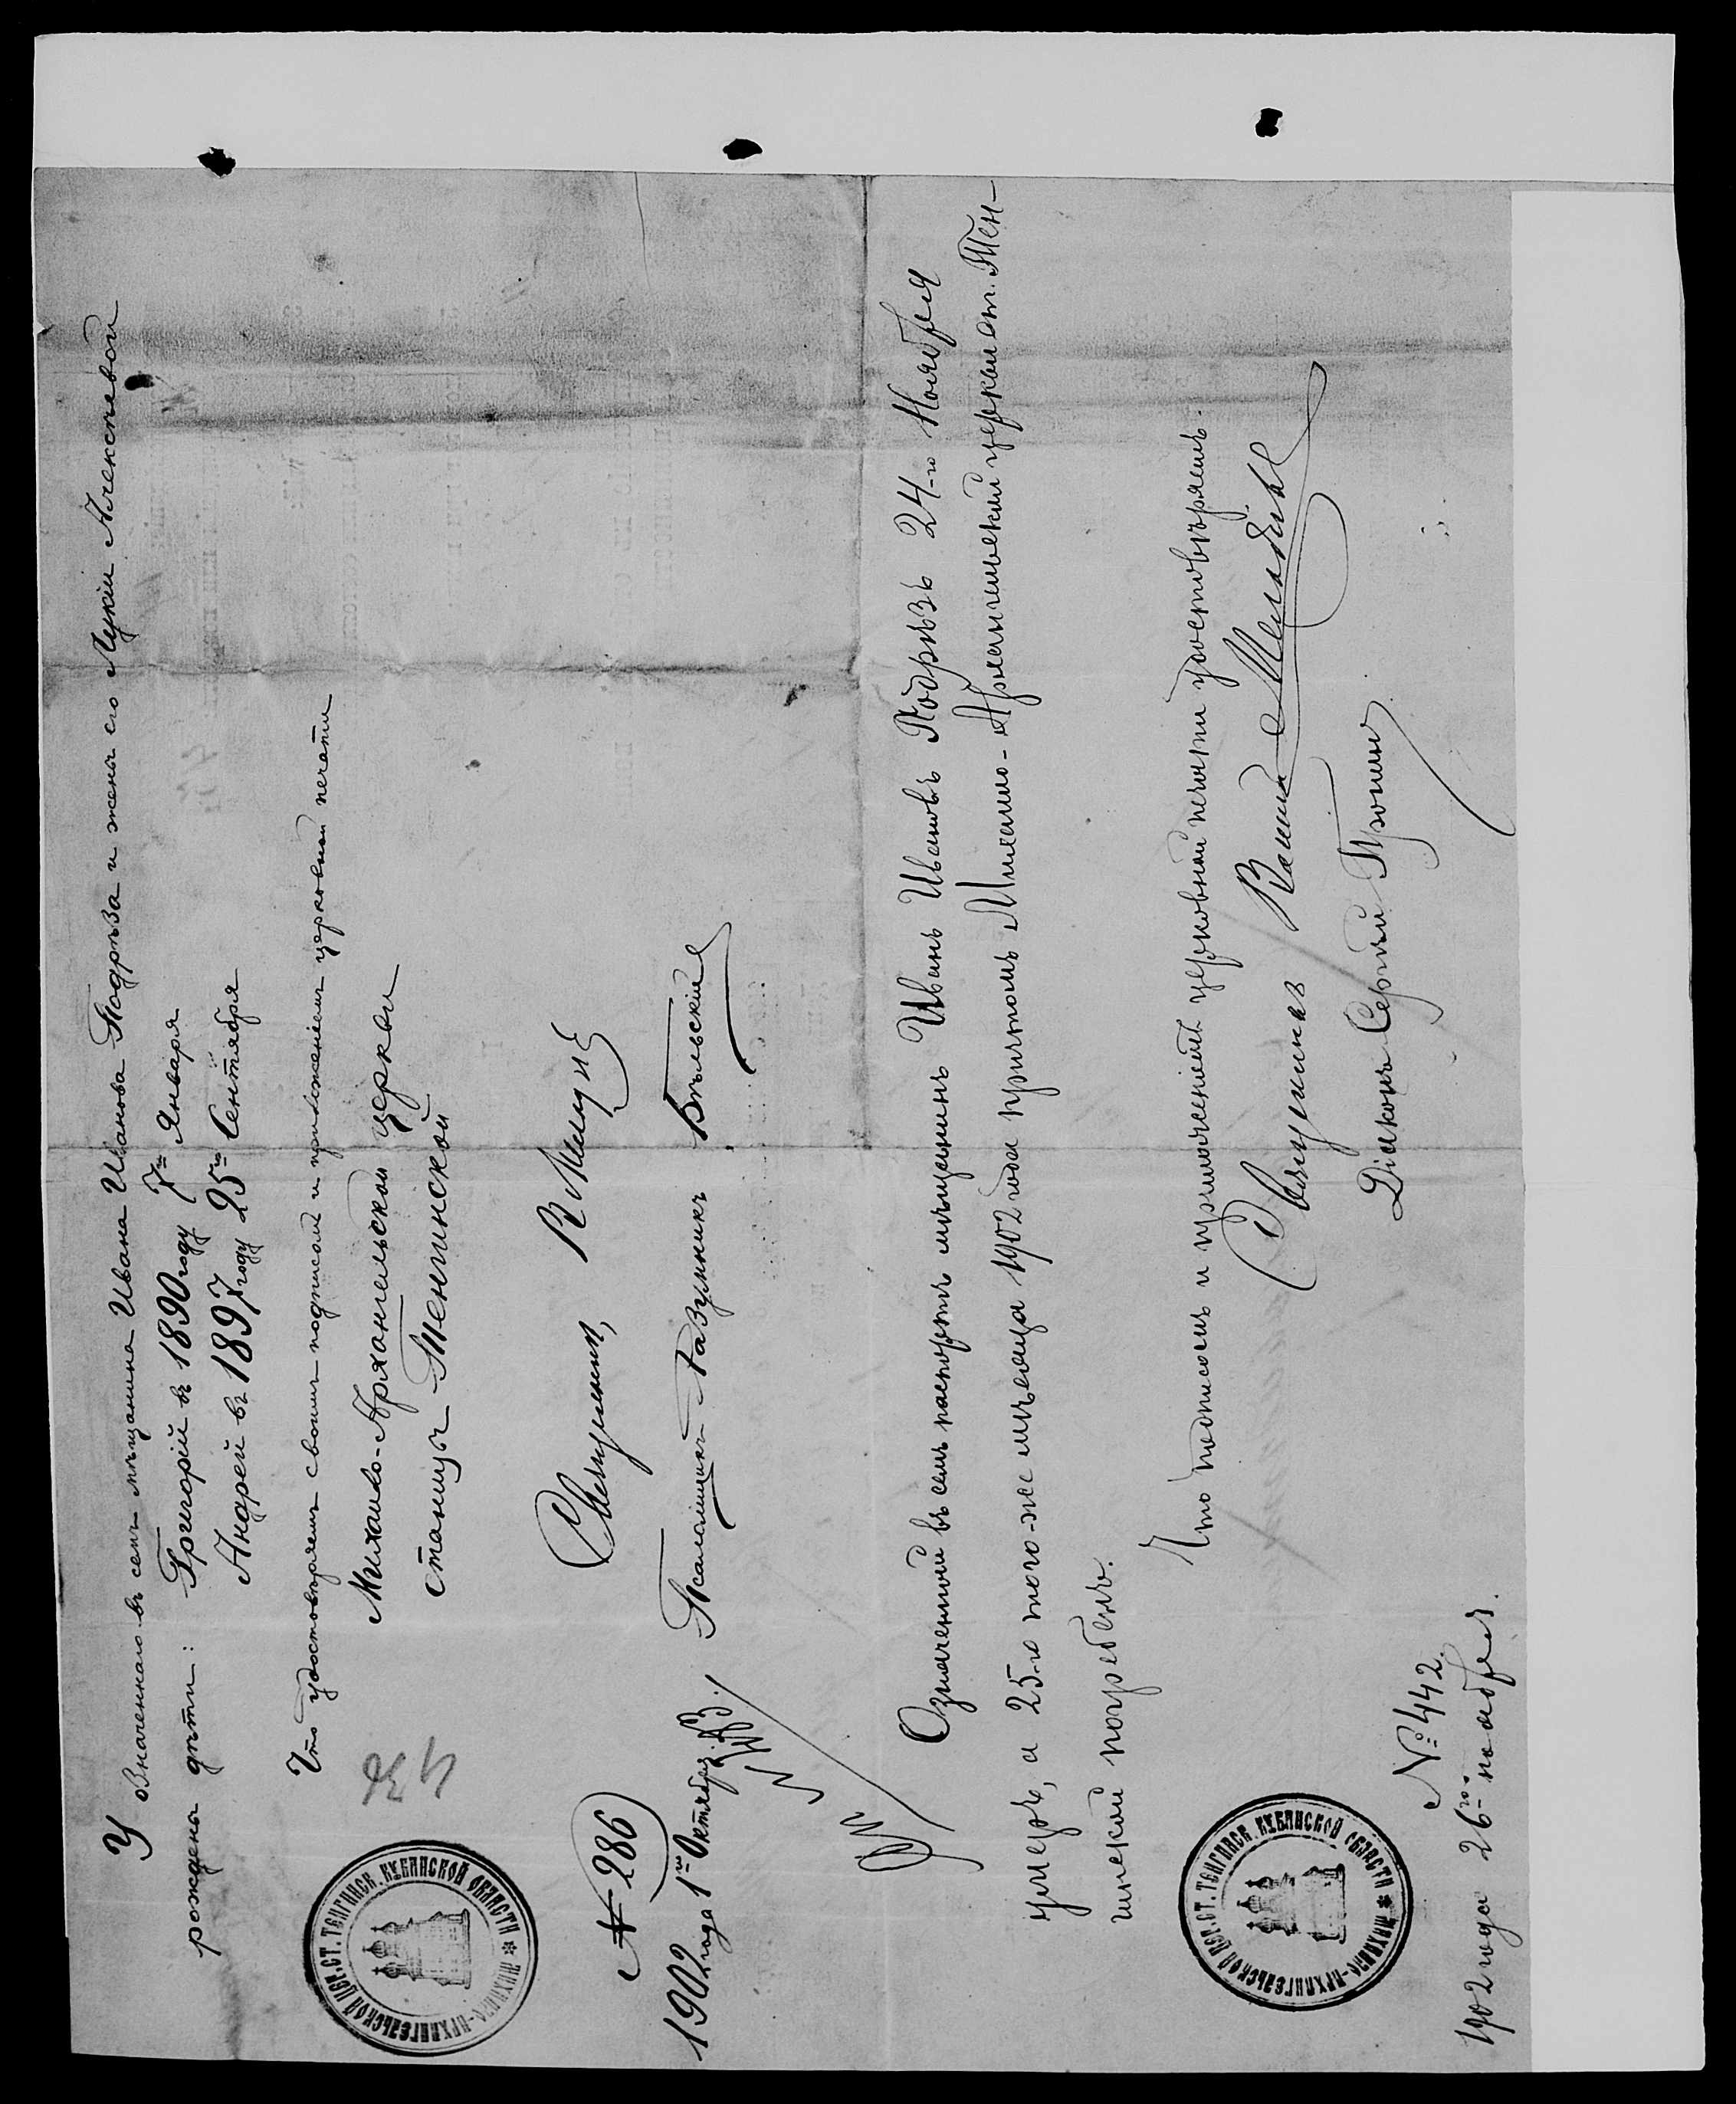 У означеннаго въ семъ мѣщанина Ивана Иванова Подрѣза и жены его Лукіи Алексѣевой
рождены дѣти: Григорій въ 1890 году 7го Января
Андрей въ 1897 году 25го Сентября
Что удостовѣряемъ своимъ подписомъ и приложеніемъ церковной печати
Михаило-Архангельской церкви
станицы Тенгинской
436
МИХАИЛО-АРХАНГЕЛЬСКОЙ ЦЕР. СТ. ТЕНГИНСК. КУБАНСКОЙ ОБЛАСТИ
Священникъ
Псаломщикъ Бѣльскій
№ 286
1902 года 1го Октября
Означенный въ семъ паспортѣ мѣщанинъ Иванъ Ивановъ Подрѣзъ 24-го Ноября
умеръ, а 25-го того-же мѣсяца 1902 года причтомъ Михаило-Архангельской церкви ст. Тен-
гинской погребенъ.
Что подписомъ и приложеніемъ церковной печати удостовѣряемъ.
Священникъ
Діаконъ Сергій
МИХАИЛО-АРХАНГЕЛЬСКОЙ ЦЕР. СТ. ТЕНГИНСК. КУБАНСКОЙ ОБЛАСТИ
№ 442.
1902 года 26го ноября.